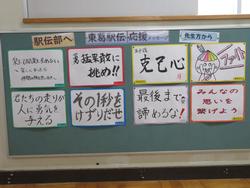 駅伝部へ
東葛駅伝 応援メッセージ
先生方から
勇猛果敢に
挑め!!
克己心
ファイト
君たちの走りが
人に勇気を
与える
その1秒を
けずりだせ
最後まで
諦めるな!
みんなの
思いを
繋げよう